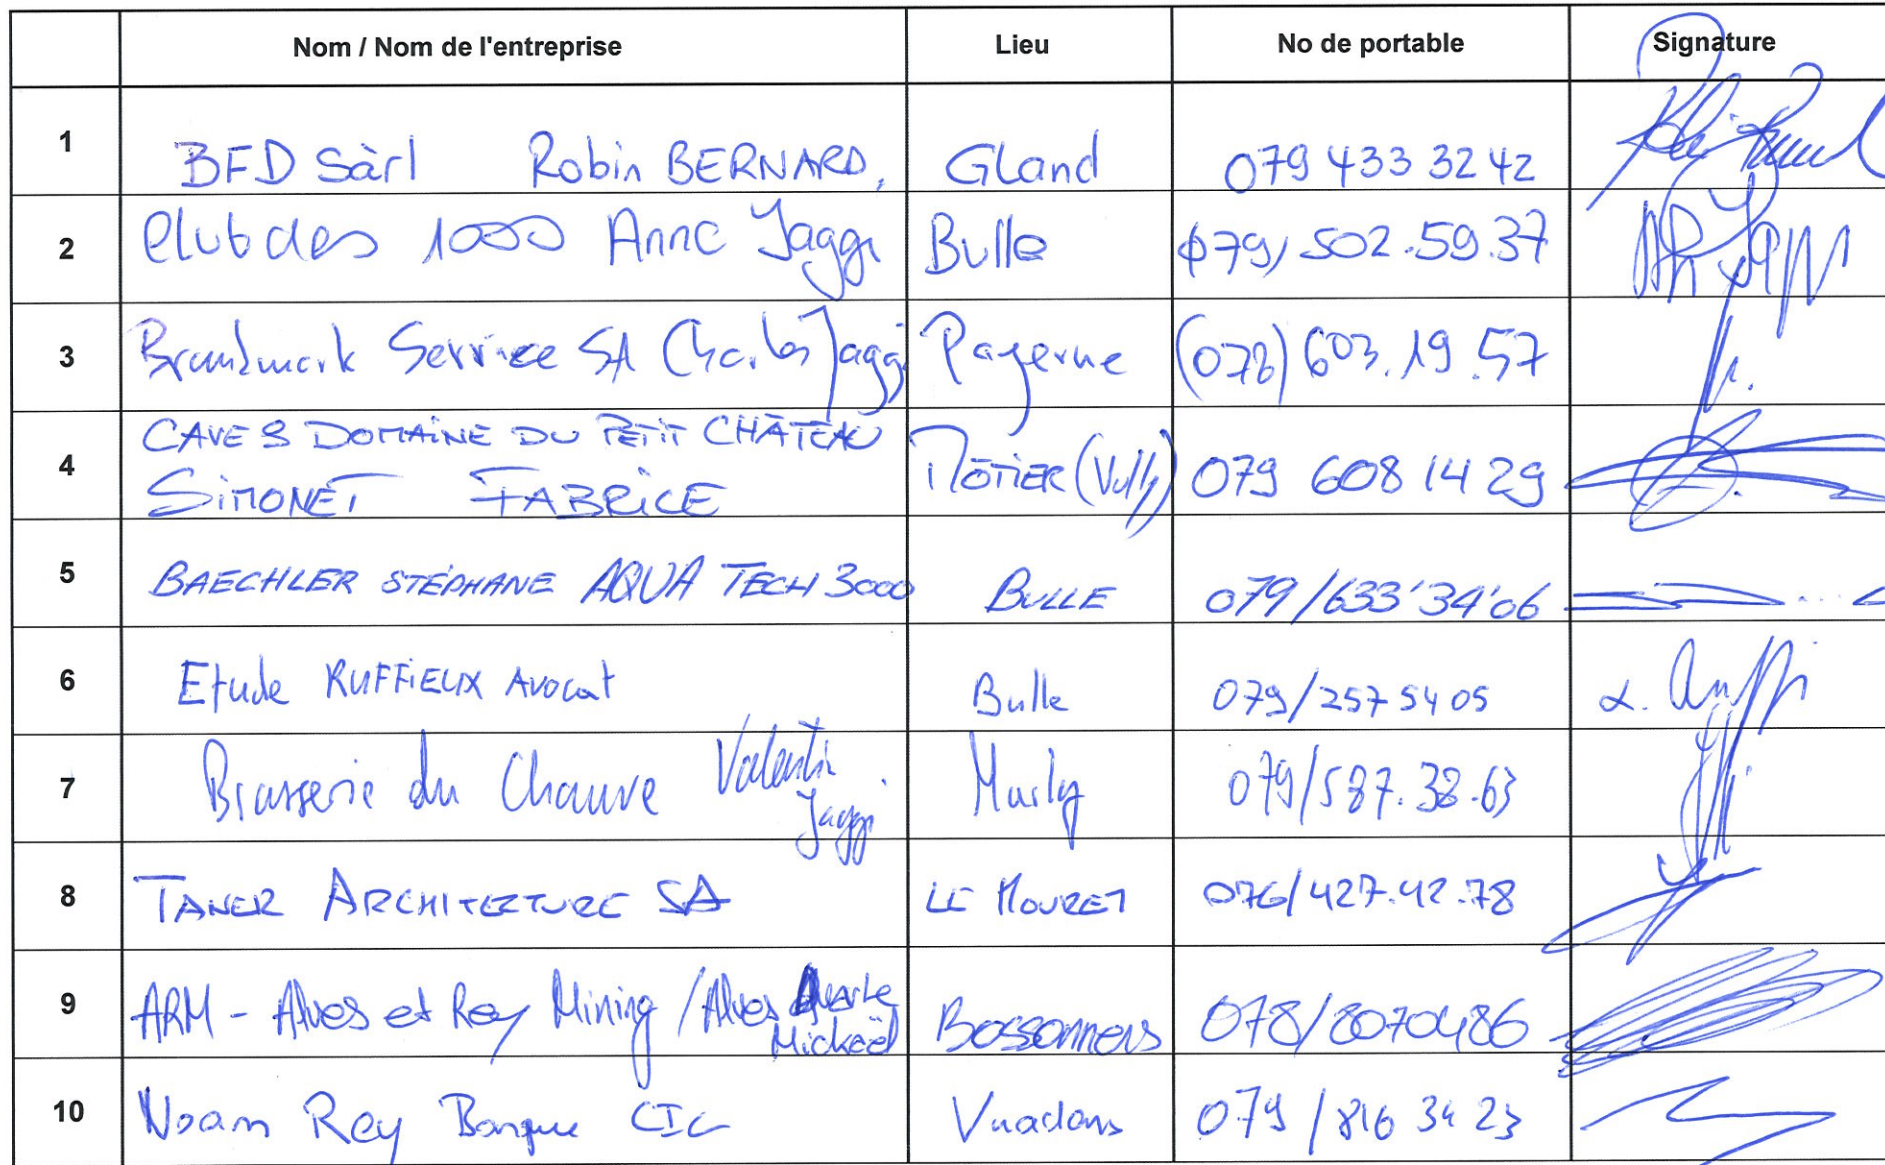 Nom / Nom de l'entreprise Lieu No de portable Signature
1 BFD Sàrl Robin BERNARD, Gland 079 433 32 42
2 Club des 1000 Anne Jaggi Bulle 079/502.59.37
3 Brandmark Service SA Charles Jaggi Payerne (078) 603.19.57
CAVE & DOMAINE DU PETIT CHÂTEAU
4 SIMONET FABRICE MÔTIER (Vully) 079 608 14 29
5 BAECHLER STÉPHANE AQUA TECH 3000 BULLE 079/633'34'06
6 Etude RUFFIEUX Avocat Bulle 079/257 54 05
7 Brasserie du Chauve Valentin Jaggi Marly 079/587.38.63
8 TANER ARCHITECTURE SA LE MOURET 076/427.42.78
9 ARM - Alves et Rey Mining / Alves Mickaël Bossonnens 078/8070486
10 Noam Rey Banque CIC Vuadens 079 / 816 34 23